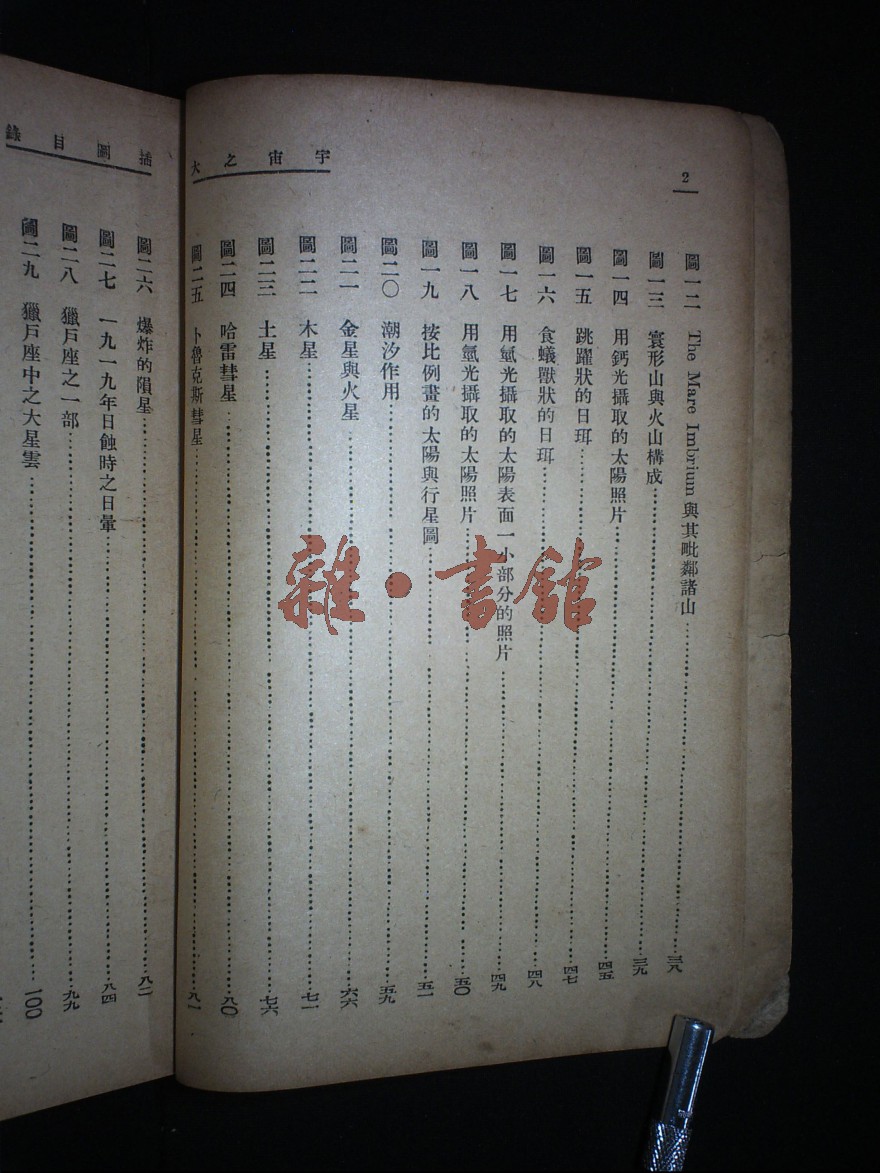 2
宇宙之大
圖一二 The Mare Imbrium 與其毗鄰諸山 三八
圖一三 寰形山與火山構成 三九
圖一四 用鈣光攝取的太陽照片 四五
圖一五 跳躍狀的日珥 四七
圖一六 食蟻獸狀的日珥 四八
圖一七 用氫光攝取的太陽表面一小部分的照片 四九
圖一八 用氫光攝取的太陽照片 五〇
圖一九 按比例畫的太陽與行星圖 五一
圖二〇 潮汐作用 五九
圖二一 金星與火星 六六
圖二二 木星 七一
圖二三 土星 七六
圖二四 哈雷彗星 八〇
圖二五 卜魯克斯彗星 八一
插圖目錄
圖二六 爆炸的隕星 八二
圖二七 一九一九年日蝕時之日暈 八四
圖二八 獵戶座之一部 九九
圖二九 獵戶座中之大星雲 一〇〇
雜·書館